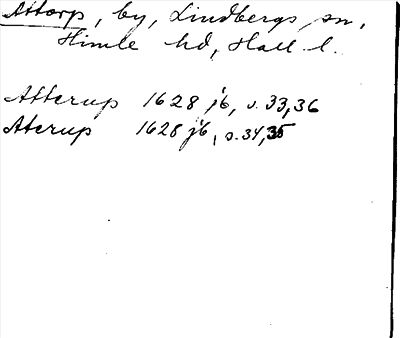 Attorp, by, Lindbergs sn,
Himle hd, Hall l.
Atterup 1628 jb, s. 33, 36
Aterup 1628 jb, s. 34, 35